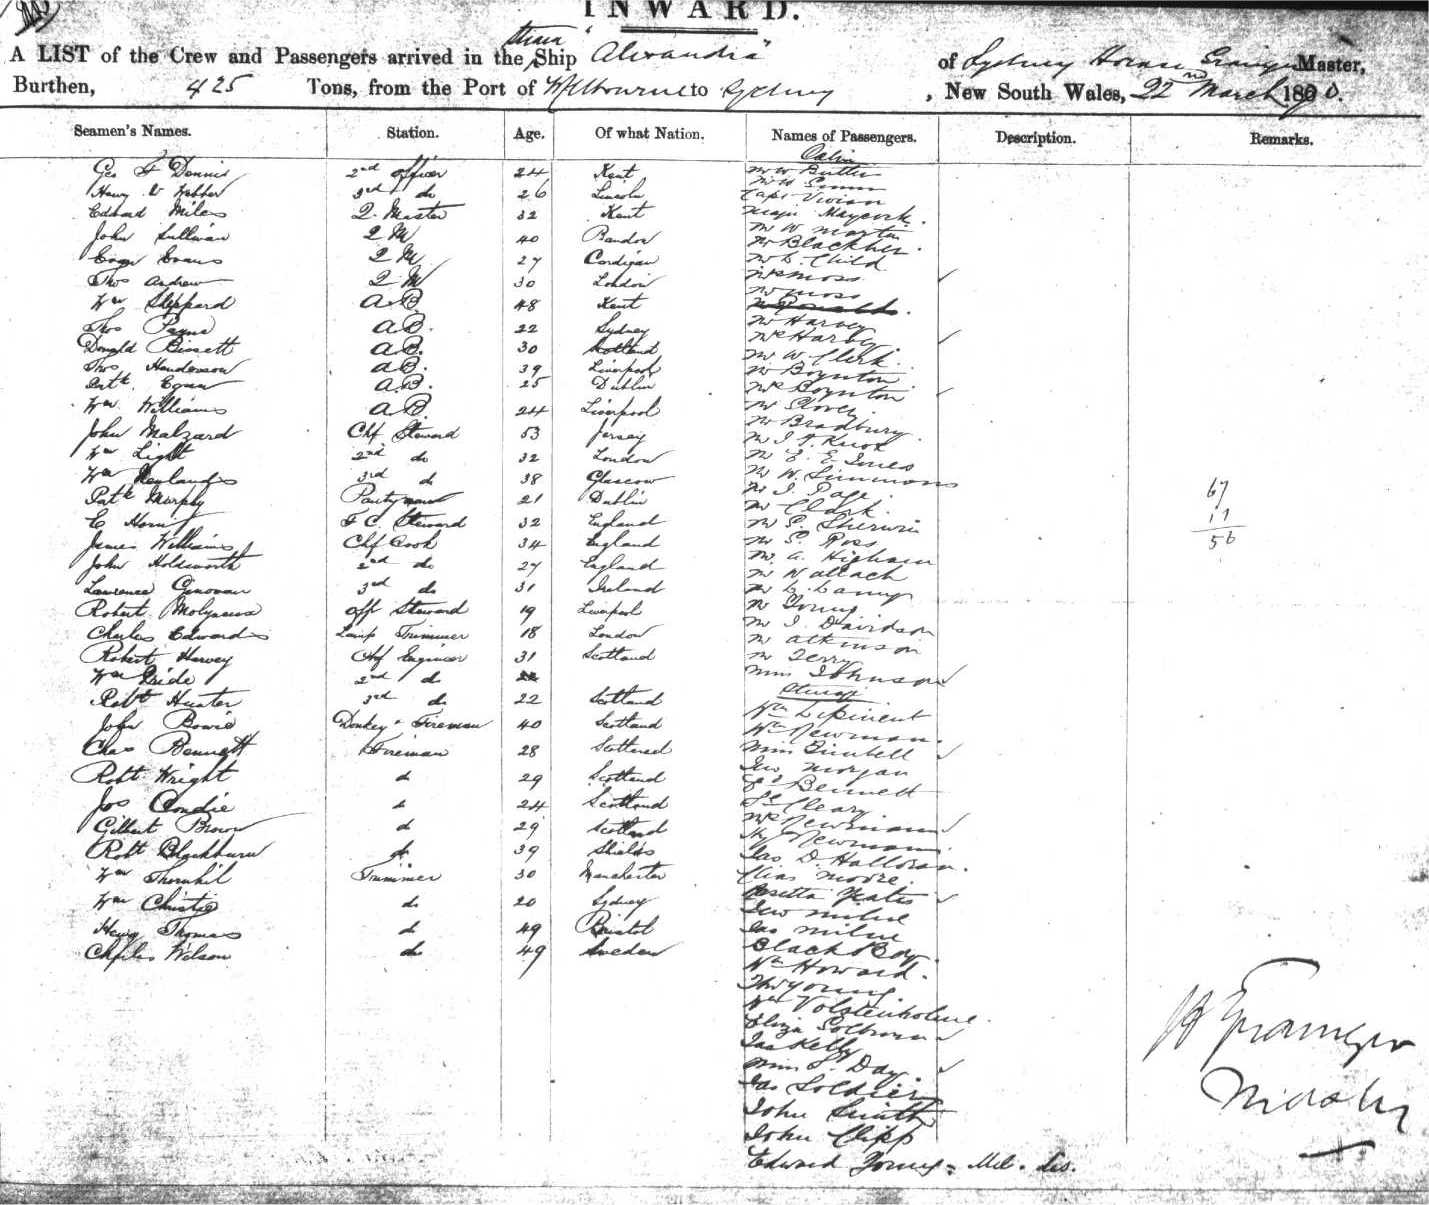 INWARD.
A LIST of the Crew and Passengers arrived in the Steam Ship "Alexandra" of Sydney Horace Grainger Master,
Burthen, 425 Tons, from the Port of Melbourne to Sydney, New South Wales, 22nd March 1870.
Seamen's Names. Station. Age. Of what Nation. Names of Passengers. Description. Remarks.
Cabin
Geo F Dennis 2nd Officer 24 Kent Mr W Butler
Henry V Webber 3rd do 26 Lincoln Mr H
Capt Vivian
Edward Miles Q. Master 32 Kent Major Maycock.
John Sullivan Q M 40 Bandon Mr W Martin
Mr Blackher.
Evan Evans Q M 27 Cardigan Mr C. Child
Thos Andrew Q M 30 London Mrs Moss
Mr Moss
Wm Sheppard A.B. 48 Kent
Thos Payne A.B. 22 Sydney Mr Harvey
Mrs Harvey
Donald Bissett A.B. 30 Scotland Mr W. Clerk.
Thos Henderson A.B. 39 Liverpool Mr Boynton.
Patk Egan A.B. 25 Dublin Mrs Boynton
Wm Williams A.B. 24 Liverpool Mr
Mr Bradbury.
John Malzard Chf Steward 53 Jersey Mr J. A. Knox
Wm Light 2nd do 32 London Mr E. E. Jones
Wm Newlands 3rd do 38 Glascow Mr W. Simmons
Patk Murphy Pantryman 21 Dublin Mr J. Page.
Mr Clark.
67
C Horn F C. Steward 32 England Mr S. Sherwin
11
James Williams Chf Cook 34 England Mr S. Ross
56
John Holdsworth 2nd do 27 England Mr A. Higham
Mr Wallach
Lawrence Genovan 3rd do 31 Ireland Mr L.
Robert Molyneux Off Steward 19 Liverpool Mr Young
Charles Edwards Lamp Trimmer 18 London Mr J. Davidson
Mr Atkinson
Robert Harvey Chf Engineer 31 Scotland Mr Terry
Wm Pride 2nd do 22 Miss Johnson
Steerage
Robt Hunter 3rd do 22 Scotland Wm
John Bowie Donkey Fireman 40 Scotland Wm Newman.
Chas Bennett Fireman 28 Scotland Miss
Geo Morgan
Robt Wright do 29 Scotland Ed Bennett
Jos Condie do 24 Scotland Cleary
Gilbert Brown do 29 Scotland Mrs Newman
Hy Newman
Robt Blackburn do 39 Shields Jas D. Halloran.
Wm Thornhil Trimmer 30 Manchester Elias Moore.
Rosetta Yeates
Wm Christie do 20 Sydney Geo Milne
Henry Thomas do 49 Bristol Jas Milne
Charles Wilson do 49 Sweden Black Boy.
Wm Howard.
Thos Young.
Wm Volstenholme.
Eliza
Jas Kelly
Miss S. Day.
Jas Soldier
John Smith
John Clipp
Edward Young
H Grainger
Master